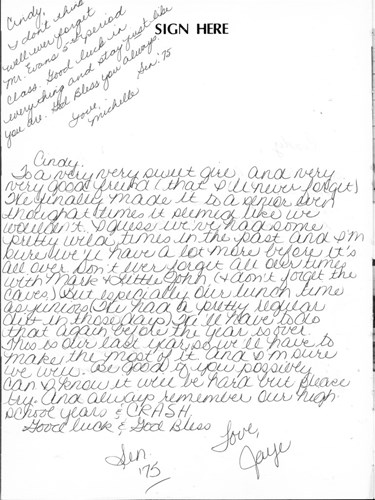 SIGN HERE
Cindy,
I don't think
we'll ever forget
Mr. Evans 5th period
class. Good luck in
everything and stay just like
you are. God Bless you always.
Love,
Michelle
Sen. '75
Cindy,
To a very very sweet girl and very
very good friend (that I'll never forget)
We finally made it to a senior even
though at times it seemed like we
wouldn't. I guess we've had some
pretty wild times in the past and I'm
sure we'll have a lot more before it's
all over. Don't ever forget all our times
with Mark & Little John (& don't forget the
caves) But especially our lunch time
as juniors. We had a pretty regular
in those days. We'll have to do
that again before the year is over.
This is our last year, so we'll have to
make the most of it and I'm sure
we will. Be good if you possibly
can I know it will be hard but please
try. And always remember our high
school years & CRASH.
Good luck & God Bless
Love,
Jaye
Sen.
'75